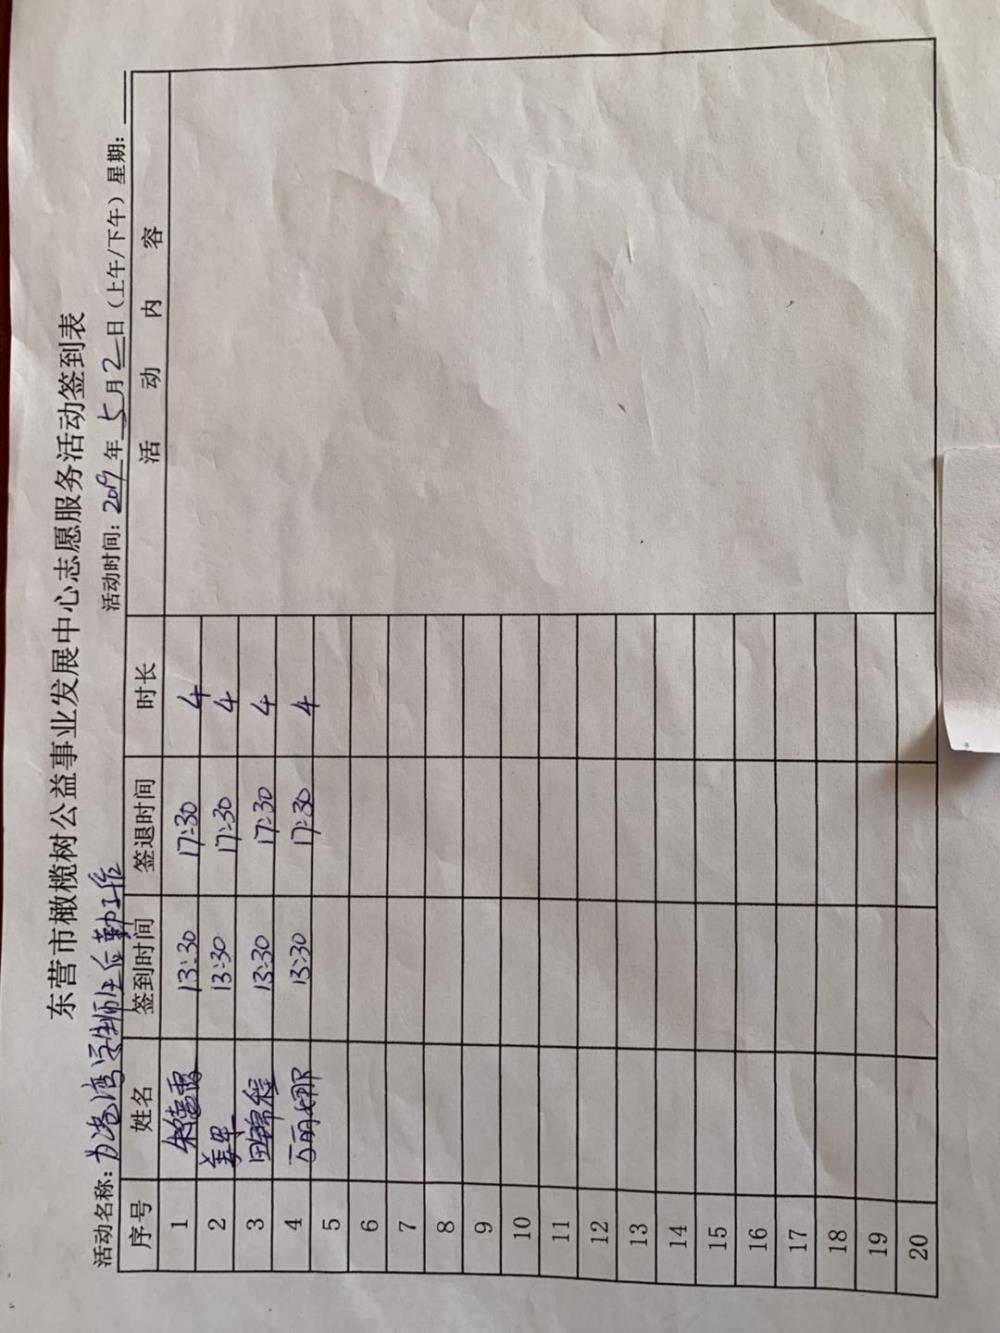 东营市橄榄树公益事业发展中心志愿服务活动签到表
活动名称： 活动时间：2019年5月2日（上午/下午）星期：
序号 姓名 签到时间 签退时间 时长 活动内容
1 13:30 17:30 4
2 姜军 13:30 17:30 4
3 田锦程 13:30 17:30 4
4 丽娜 13:30 17:30 4
5
6
7
8
9
10
11
12
13
14
15
16
17
18
19
20